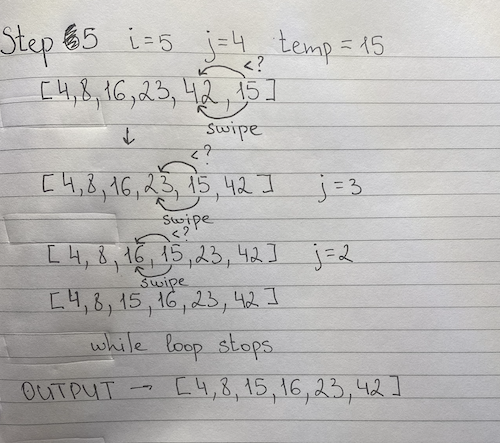 Step 5 i=5 j=4 temp = 15
<?
[4,8,16,23,42,15]
swipe
↓
<?
[4,8,16,23,15,42] j=3
swipe
<?
[4,8,16,15,23,42] j=2
swipe
[4,8,15,16,23,42]
while loop stops
OUTPUT → [4,8,15,16,23,42]